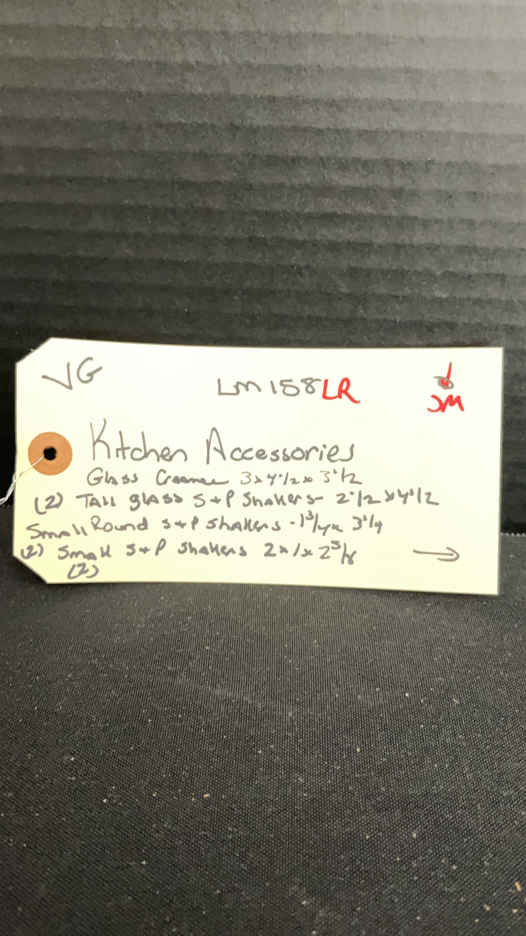 VG
LM158LR
JM
Kitchen Accessories
Glass Creamer 3x4 1/2 x 3 1/2
(2) Tall glass S+P Shakers - 2 1/2 x 4 1/2
Small Round S+P Shakers - 1 3/4 x 3 1/4
(2) Small S+P Shakers 2x1x2 5/8
(2)